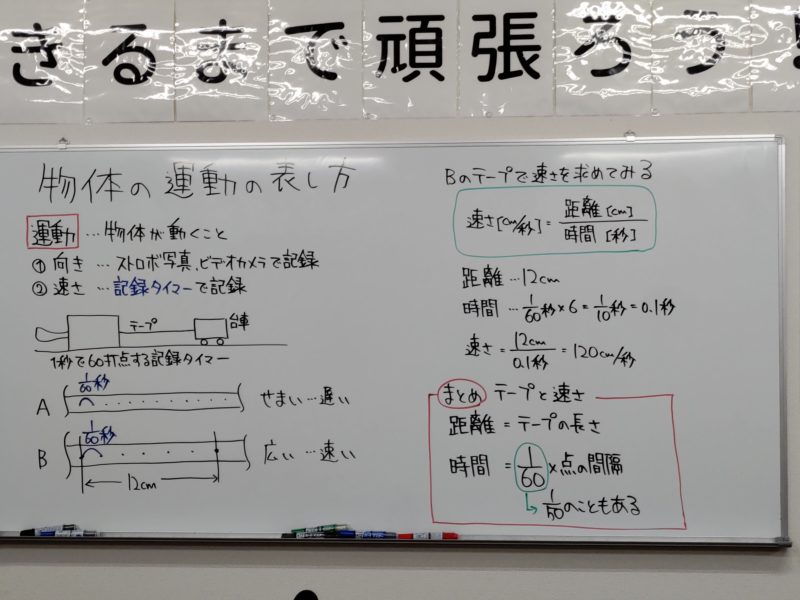 きるまで頑張ろう!
物体の運動の表し方
運動 …物体が動くこと
① 向き …ストロボ写真、ビデオカメラで記録
② 速さ …記録タイマーで記録
テープ
台車
1秒で60打点する記録タイマー
A 1/60秒 せまい…遅い
B 1/60秒 広い…速い
12cm
Bのテープで速さを求めてみる
速さ[cm/秒]=距離[cm]/時間[秒]
距離…12cm
時間…1/60秒×6=1/10秒=0.1秒
速さ=12cm/0.1秒=120cm/秒
まとめ テープと速さ
距離=テープの長さ
時間=1/60×点の間隔
1/50のこともある